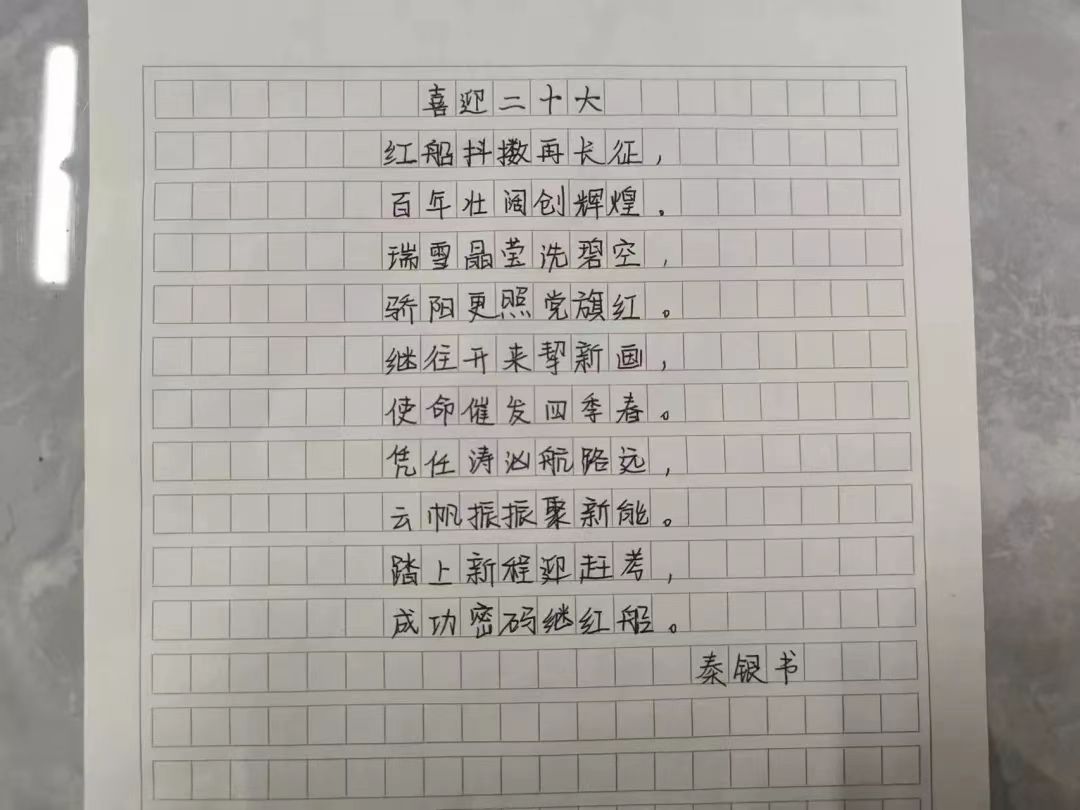 喜迎二十大
红船抖擞再长征，
百年壮阔创辉煌。
瑞雪晶莹洗碧空，
骄阳更照党旗红。
继往开来挈新画，
使命催发四季春。
凭任涛汹航路远，
云帆振振聚新能。
踏上新程迎赶考，
成功密码继红船。
秦银书